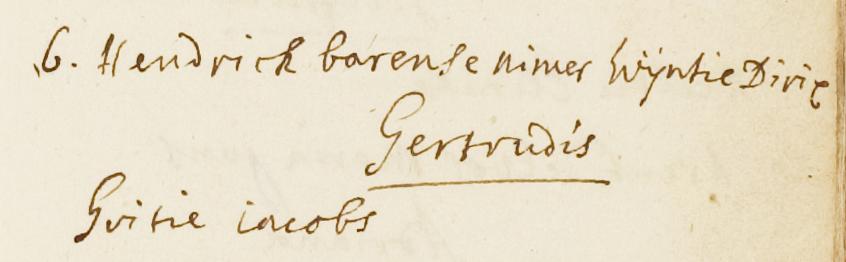 6. Hendrick barense nimer Wÿntie Dirix
Gertrudis
Gritie iacobs